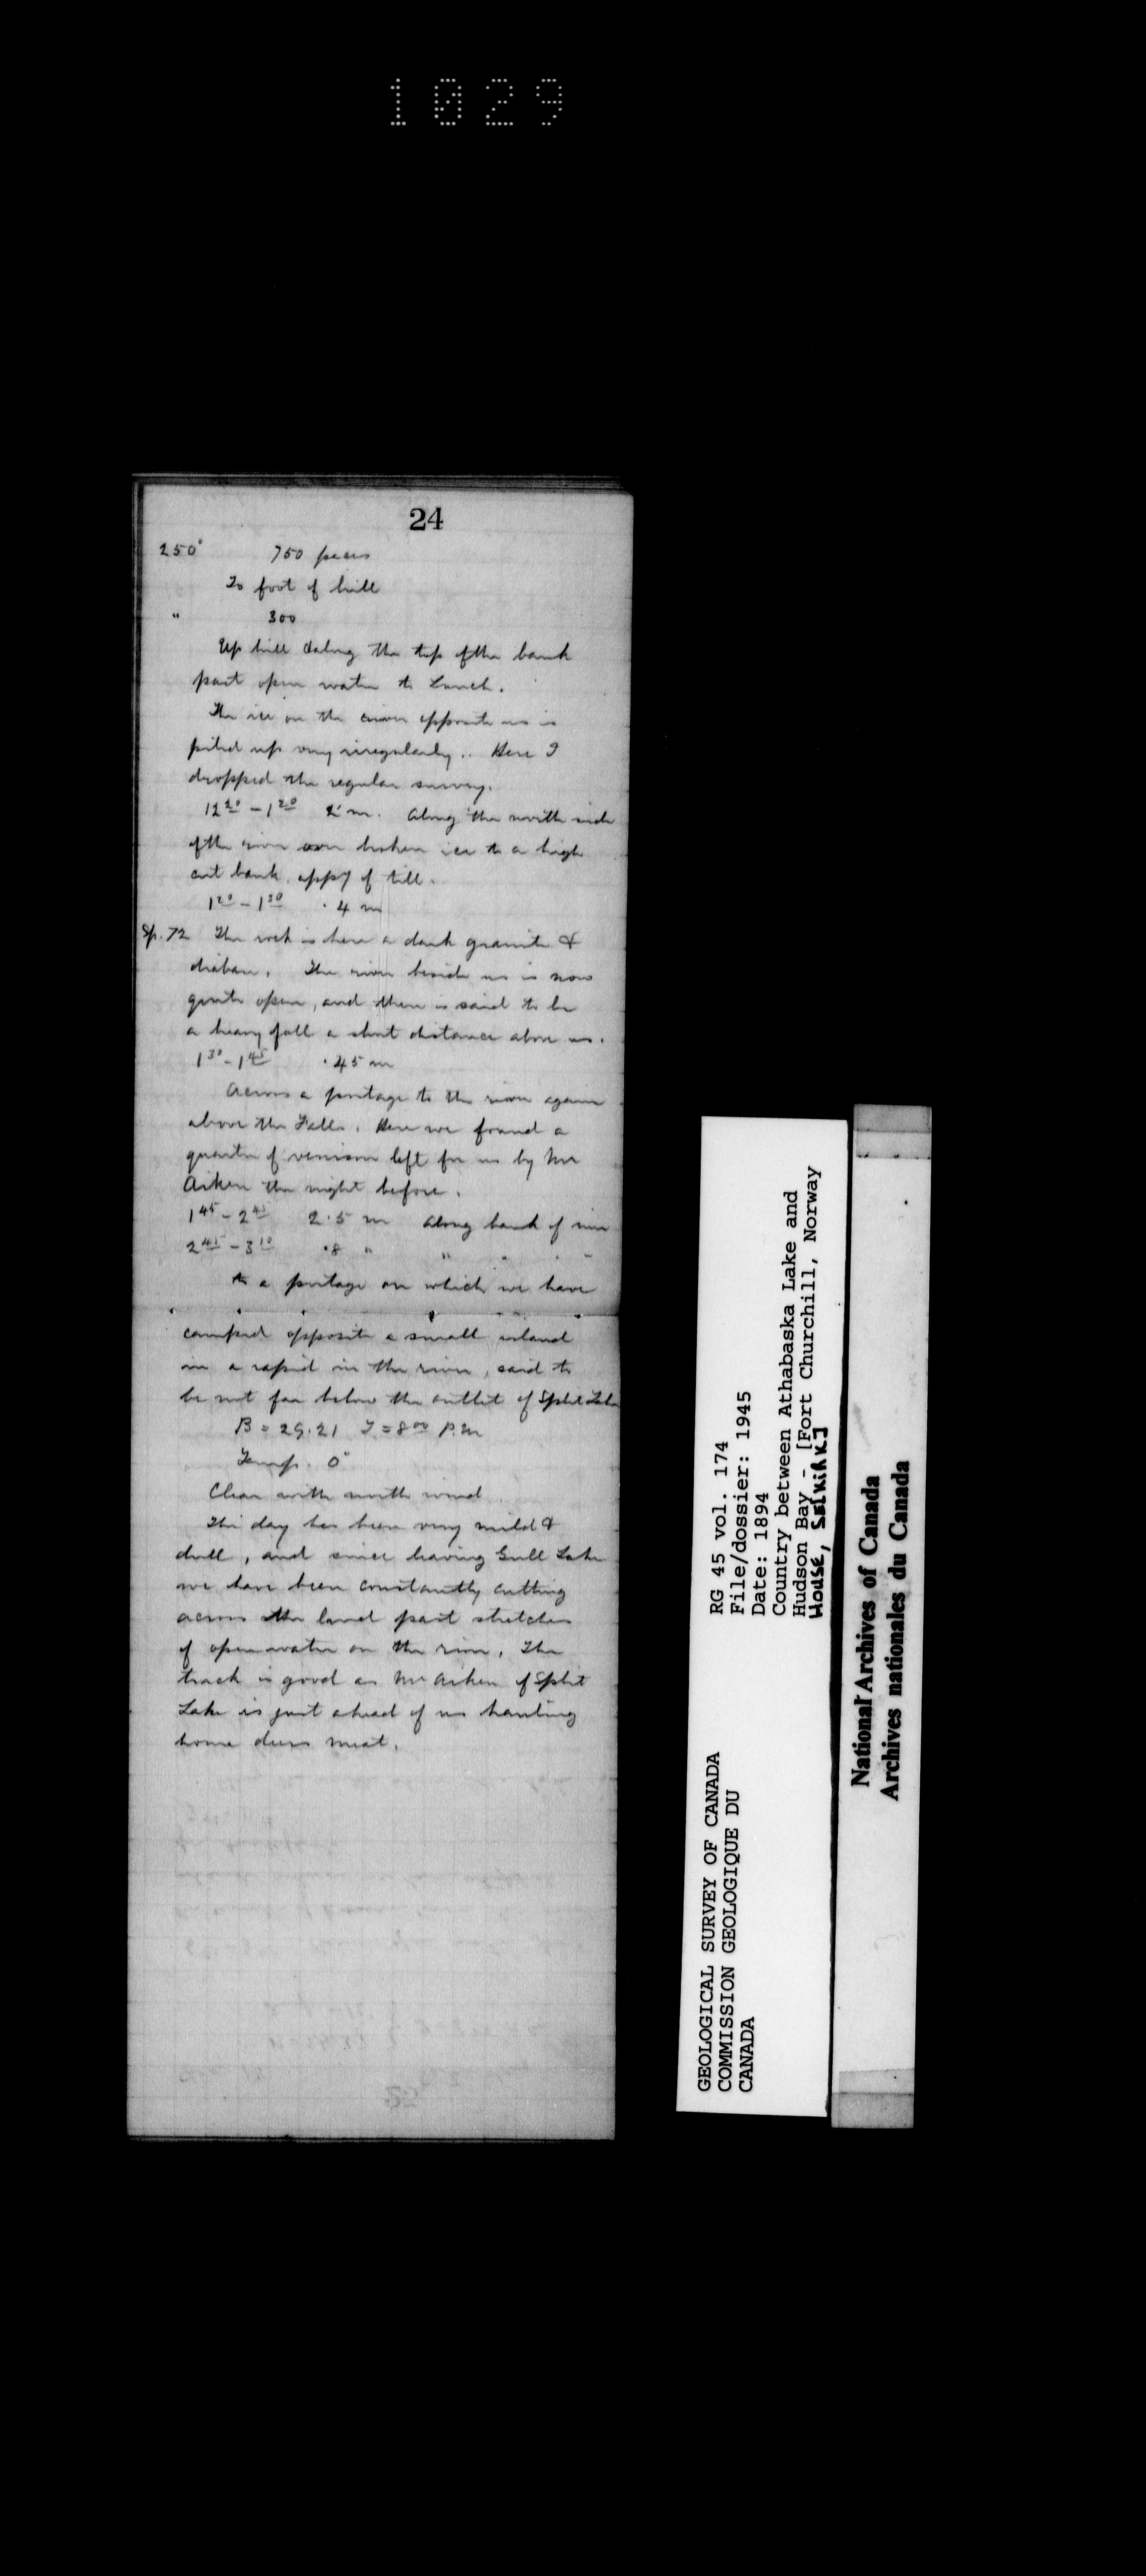 1029
24
250° 750 paces
To foot of hill
" 300
Up hill & along the top of the bank
past open water to Lunch.
The ice on the river opposite us is
piled up very irregularly.. Here I
dropped the regular survey.
12 20 - 1 20 2 m. Along the north side
of the river over broken ice to a high
cut bank, appy of till.
1 20 - 1 30 .4 m
Sp. 72 The rock is here a dark granite &
diabase. The river beside us is now
quite open, and there is said to be
a heavy fall a short distance above us.
1 30 - 1 45 .45 m
Across a portage to the river again
above the Falls. Here we found a
quarter of venison left for us by Mr
Aiken the night before.
1 45 - 2 45 2.5 m Along bank of river
2 45 - 3 10 .8 " " " " "
to a portage on which we have
camped opposite a small island
in a rapid in the river, said to
be not far below the outlet of Split Lake
B = 29.21 T = 8 00 P.M
Temp. 0°
Clear with north wind
The day has been very mild &
dull, and since leaving Gull Lake
we have been constantly cutting
across the land past stretches
of open water on the river. The
track is good as Mr Aiken of Split
Lake is just ahead of us hauling
home deers meat.
GEOLOGICAL SURVEY OF CANADA
COMMISSION GEOLOGIQUE DU
CANADA
RG 45 vol. 174
File/dossier: 1945
Date: 1894
Country between Athabaska Lake and
Hudson Bay - [Fort Churchill, Norway
House, Selkirk]
National Archives of Canada
Archives nationales du Canada